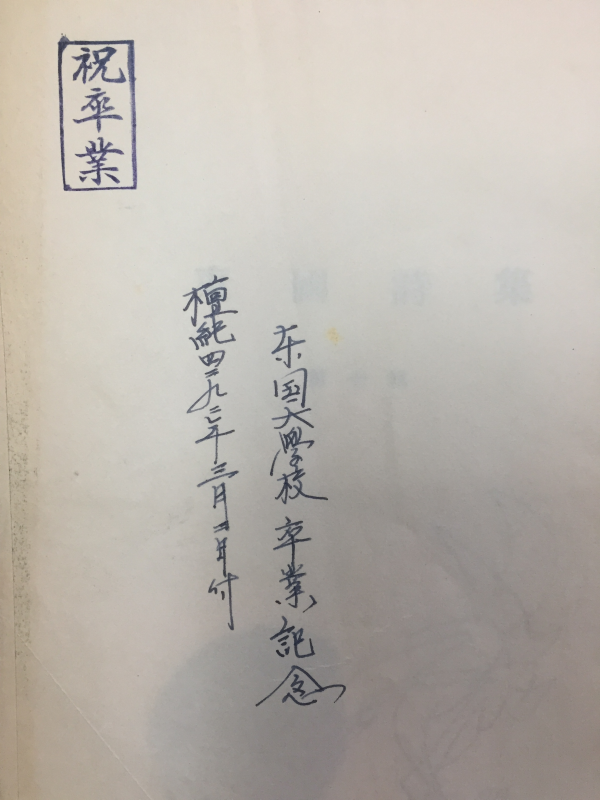 祝卒業
東国大學校 卒業記念
檀紀四二九二年三月二日付